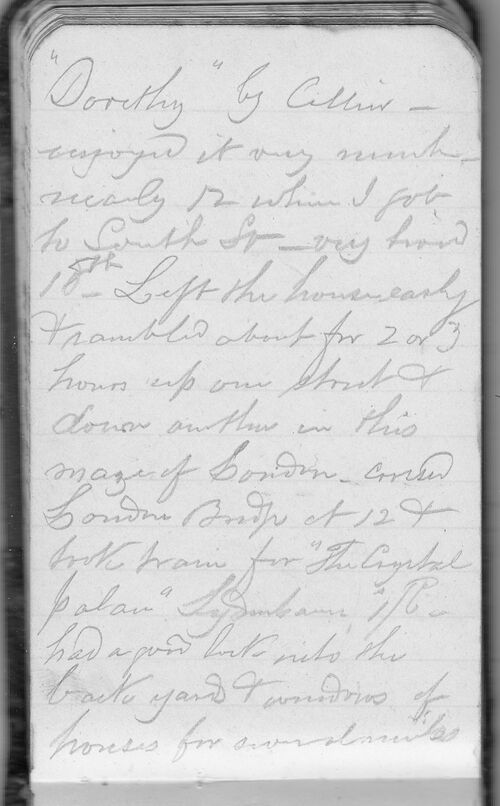 "Dorothy" by Cellier -
enjoyed it very much -
nearly 12 when I got
to South St - very tired
18th - Left the house early
& rambled about for 2 or 3
hours up one street &
down another in this
maze of London - crossed
London Bridge at 12 &
took train for "The Crystal
Palace" Sydenham 1/6 -
had a good look into the
back yard & windows of
houses for several miles